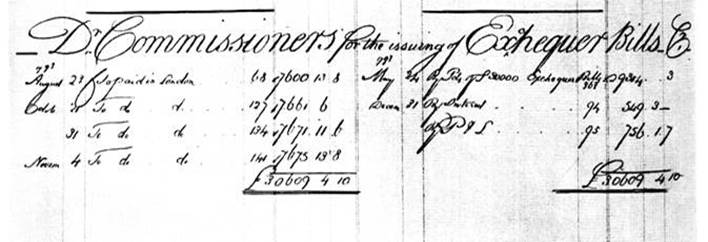 Dr. Commissioners for the issuing of Exchequer Bills Cr.
1793 1793
August 23 To paid in London 68 7600 13 8 May 24 By Exchequer Bills 29304 . 3
Octob. 21 To do do 127 7661 6 Decem 31 By Interest 94 549 3 —
31 To do do 134 7671 11 6 By P & L 95 756 1 7
Novem 4 To do do 141 7675 13 8
£30609 4 10 £30609 4 10